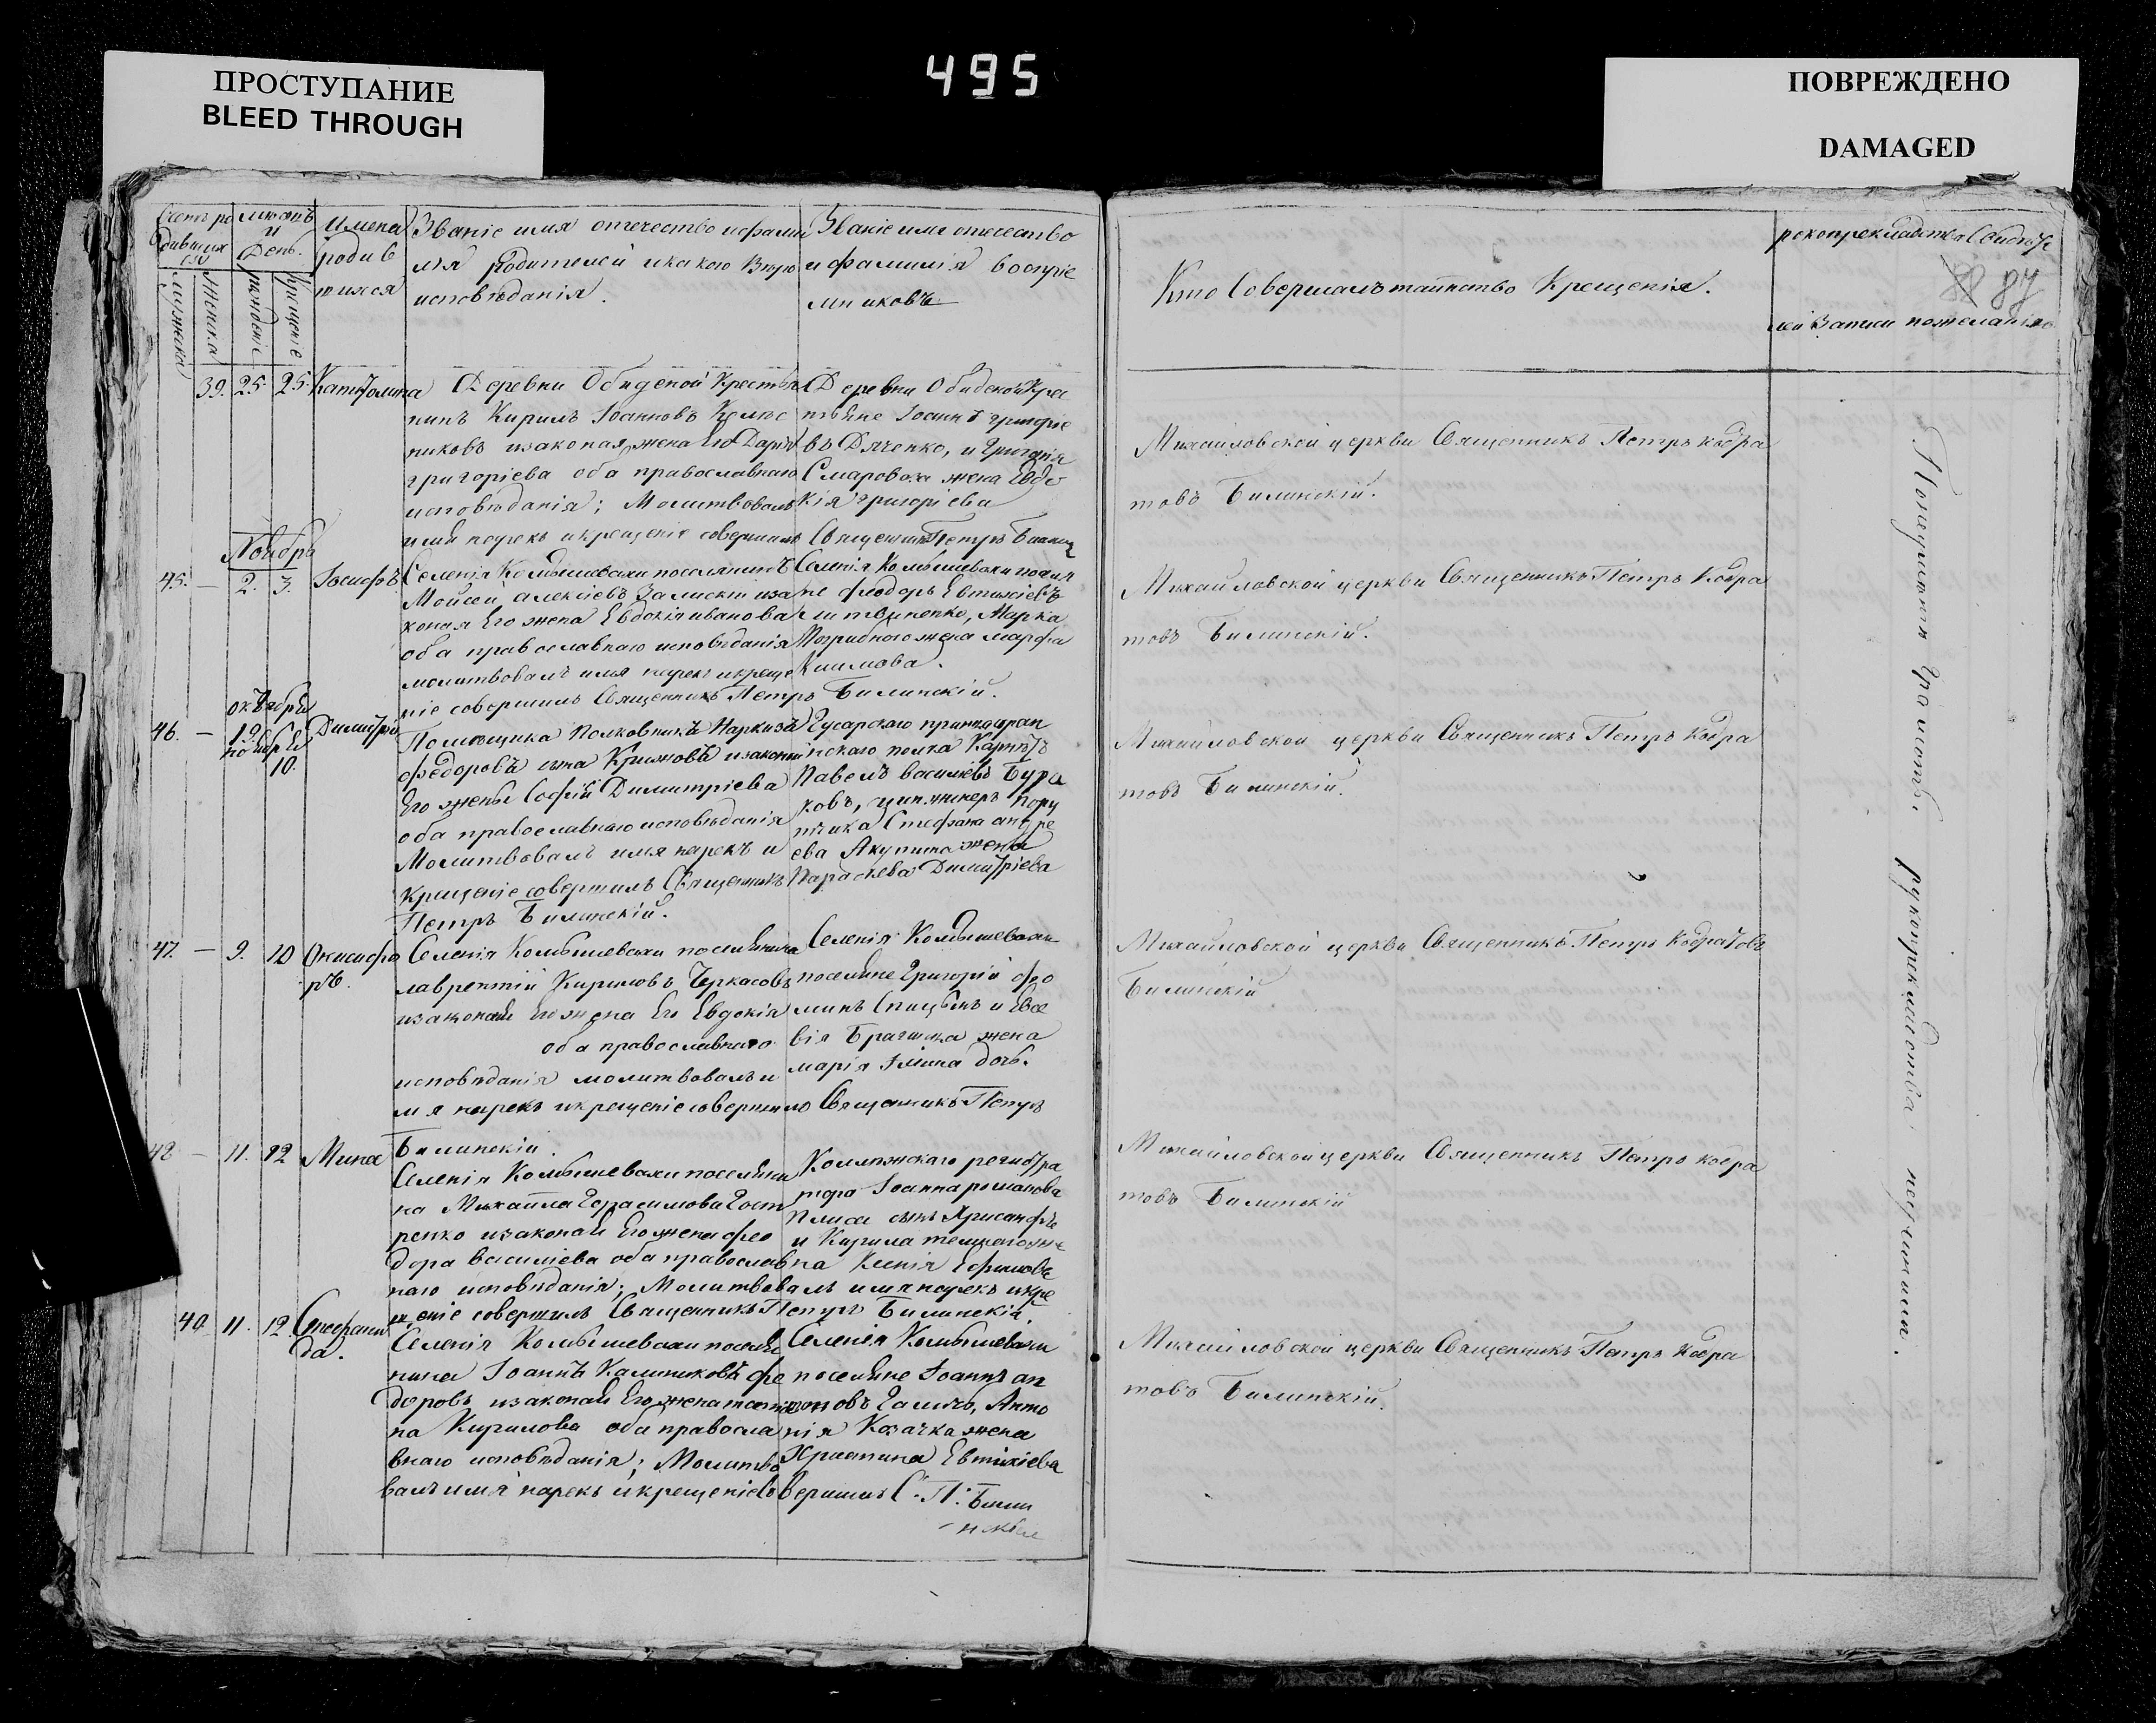 ПРОСТУПАНИЕ
BLEED THROUGH
495
ПОВРЕЖДЕНО
DAMAGED
Имена
родив
шихся
Званіе имя отечество и фами
лія родителей и какого вѣро
исповѣданія.
Званіе имя отечество
и фамилія воспріе
мниковъ
мужска
женска
рожденіе
крищеніе
Кто Совершалъ таинство Крещенія.
87
39. 25. 25. Деревни Обидной
нинъ Кирилъ Іоанновъ
и законая жена Его Даря
григоріева оба православнаго
исповѣданія; Молитвовалъ
имя нарекъ и крещеніе совершилъ Священникъ Петръ
Деревни Обидной Крес
тьяне Іоаннъ григорiе
въ Дяченко, и Григорія
жена Евдо
кія григоріева
Михайловской церкви Священникъ Петръ Кодра
товъ Билинскій.
Ноябрь
45. — 2. 3. Іосифъ
Селенія Комышевахи поселянинъ
Мойсей алексіевъ и за
коная Его жена Евдокія иванова
оба православнаго исповѣданія
молитвовалъ имя нарекъ и креще
ніе совершилъ Священникъ Петръ Билинскій.
Селенія Комышевахи поселя
не феодоръ Евтихіевъ
Литвиненко, Марка
Погрибного жена марфа
Климова.
Михайловской церкви Священникъ Петръ Кодра
товъ Билинскій.
октября
46. — 19. Димитрій
ноября
10.
Помѣщика Полковника Наркиза
федорова сына и законой
Его жены Софіи Димитріева
оба православнаго исповѣданія
Молитвовалъ имя нарекъ и
Крищеніе совершилъ Священникъ
Петръ Билинскій.
Гусарскаго принца Оран
искаго полка Карнетъ
Павелъ василіевъ Бура
ковъ, и инжинеръ Пору
тчика Стефана андре
ева Акунина жена
Параскева Димитріева
Михайловской церкви Священникъ Петръ Кодра
товъ Билинскій.
47. — 9. 10 Онисифо
ръ.
Селенія Комышевахи поселянина
лаврентій Кириловъ Черкасовъ
и законая его жена Его Евдокія
оба православнаго
исповѣданія молитвовалъ и
мя нарекъ и крещеніе совершило Священникъ Петръ
Билинскій.
Селенія Комышевахи
поселяне Григорій фо
минъ Спицынъ и Евсе
вія Брагинка жена
марія Ильина дочь.
Михайловской церкви Священникъ Петръ Кодратовъ
Билинскій
48 — 11. 12 Мина
Селенія Комышевахи поселяни
на Михаила Герасимова Гост
ренко и законая Его жена фео
дора василіева оба православ
наго исповѣданія; Молитвовалъ имя нарекъ и кре
щеніе совершилъ Священникъ Петръ Билинскій.
Коллежскаго регистра
тора Іоанна романова
сынъ Хрисанфъ
и Кирила
на Ксенія Ефимова
Михайловской церкви Священникъ Петръ Кодра
товъ Билинскій
49. 11. 12. Стефани
да.
Селенія Комышевахи поселя
нина Іоаннъ Калинниковъ фе
доровъ и законая Его жена
на Кирилова оба правосла
внаго исповѣданія; Молитво
валъ имя нарекъ и крещеніе совершилъ С. П. Били
нскій
Селенія Комышевахи
поселяне Іоаннъ ан
тоновъ Галичъ, Анто
нія Козачка жена
Христина Евтихіева
Михайловской церкви Священникъ Петръ Кодра
товъ Билинскій.
По незнанію Грамоты рукоприкладства не учинили.